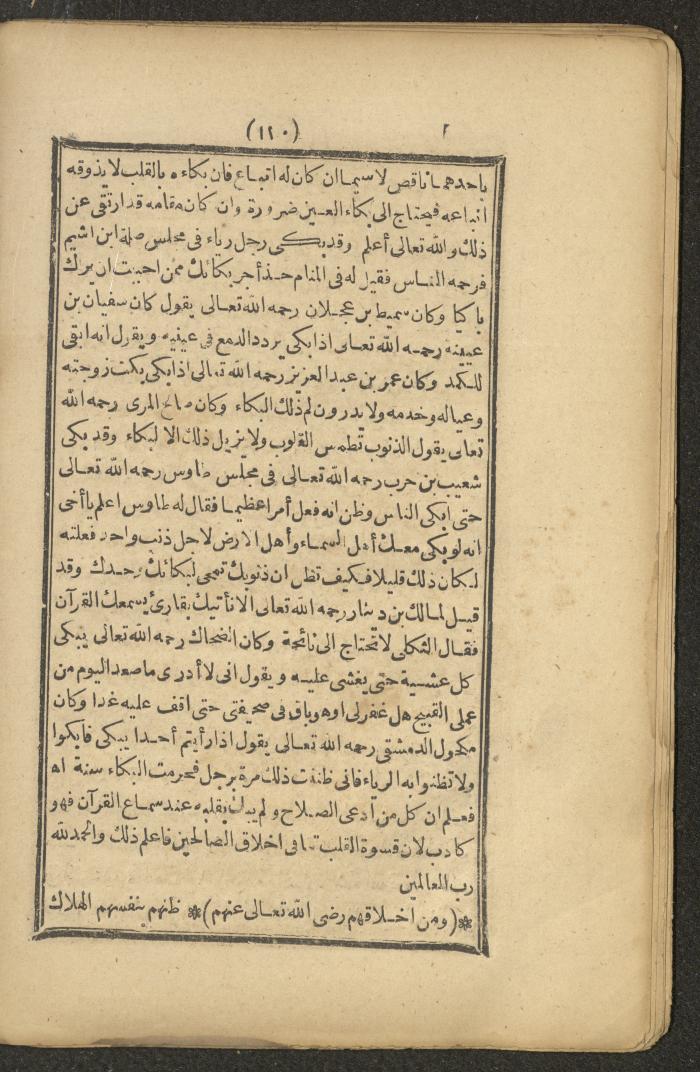 (١٢٠) ٢
باحدهما ناقص لا سيما ان كان له اتباع فان بكاءه بالقلب لا يذوقه
اتباعه فيحتاج الى بكاء العين ضرورة وان كان مقامه قد ارتقى عن
ذلك والله تعالى أعلم وقد بكى رجل رياء فى مجلس صلة ابن اشيم
فرحمه الناس فقيل له فى المنام خذ أجر بكائك ممن احببت ان يرك
باكيا وكان سميط بن عجلان رحمه الله تعالى يقول كان سفيان بن
عيينة رحمه الله تعالى اذا بكى يردد الدمع فى عينيه ويقول انه ابقى
للكمد وكان عمر بن عبد العزيز رحمه الله تعالى اذا بكى بكت زوجته
وعياله وخدمه ولا يدرون لم ذلك البكاء وكان صالح المرى رحمه الله
تعالى يقول الذنوب تطمس القلوب ولا يزيل ذلك الا البكاء وقد بكى
شعيب بن حرب رحمه الله تعالى فى مجلس طاوس رحمه الله تعالى
حتى ابكى الناس وظن انه فعل أمرا عظيما فقال له طاوس اعلم يا أخى
انه لو بكى معك أهل السماء وأهل الارض لاجل ذنب واحد فعلته
لكان ذلك قليلا فكيف تظن ان ذنوبك تمحى لبكائك وحدك وقد
قيل لمالك بن دينار رحمه الله تعالى الا نأتيك بقارئ يسمعك القرآن
فقال الثكلى لا تحتاج الى نائحة وكان الضحاك رحمه الله تعالى يبكى
كل عشية حتى يغشى عليه ويقول انى لا أدرى ما صعد اليوم من
عملى القبيح هل غفر لى او هو باق فى صحيفتى حتى اقف عليه غدا وكان
مكحول الدمشقى رحمه الله تعالى يقول اذا رأيتم أحدا يبكى فابكوا
ولا تظنوا به الرياء فانى ظننت ذلك مرة برجل فحرمت البكاء سنة اه
فعلم ان كل من ادعى الصلاح ولم يبك بقلبه عند سماع القرآن فهو
كاذب لان قسوة القلب تنافى اخلاق الصالحين فاعلم ذلك والحمد لله
رب العالمين
*(ومن اخلاقهم رضى الله تعالى عنهم)* ظنهم بنفسهم الهلاك